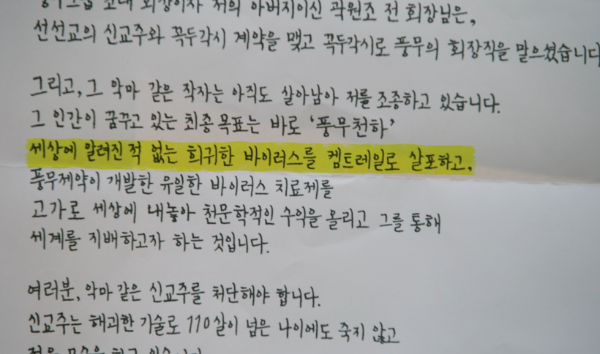 초대 회장이자 저의 아버지이신 곽원조 전 회장님은,
선선교의 신교주와 꼭두각시 계약을 맺고 꼭두각시로 풍무의 회장직을 맡으셨습니다
그리고, 그 악마 같은 작자는 아직도 살아남아 저를 조종하고 있습니다.
그 인간이 꿈꾸고 있는 최종 목표는 바로 '풍무천하'
세상에 알려진 적 없는 희귀한 바이러스를 켐트레일로 살포하고,
풍무제약이 개발한 유일한 바이러스 치료제를
고가로 세상에 내놓아 천문학적인 수익을 올리고 그를 통해
세계를 지배하고자 하는 것입니다.
여러분, 악마 같은 신교주를 처단해야 합니다.
신교주는 해괴한 기술로 110살이 넘은 나이에도 죽지 않고